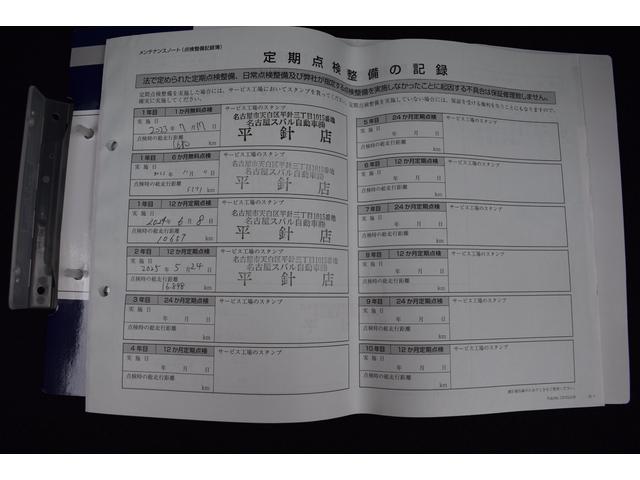 メンテナンスノート(点検整備記録簿)
定期点検整備の記録
法で定められた定期点検整備、日常点検整備及び弊社が指定する点検整備を実施しなかったことに起因する不具合は保証修理致しません。
1年目 1か月無料点検
サービス工場のスタンプ
実施日
2023年
名古屋市天白区平針三丁目1015番地
名古屋スバル自動車㈱
平針店
点検時の総走行距離
km
1年目 6か月無料点検
サービス工場のスタンプ
実施日
名古屋市天白区平針三丁目1015番地
名古屋スバル自動車㈱
平針店
点検時の総走行距離
km
1年目 12か月定期点検
サービス工場のスタンプ
実施日
2024年6月8日
名古屋市天白区平針三丁目1015番地
名古屋スバル自動車㈱
平針店
点検時の総走行距離
10657 km
2年目 12か月定期点検
サービス工場のスタンプ
実施日
2025年5月24日
名古屋市天白区平針三丁目1015番地
名古屋スバル自動車㈱
平針店
点検時の総走行距離
16898 km
3年目 24か月定期点検
サービス工場のスタンプ
実施日
年 月 日
点検時の総走行距離
km
4年目 12か月定期点検
サービス工場のスタンプ
実施日
年 月 日
点検時の総走行距離
km
5年目 24か月定期点検
サービス工場のスタンプ
実施日
年 月 日
点検時の総走行距離
km
6年目 12か月定期点検
サービス工場のスタンプ
実施日
年 月 日
点検時の総走行距離
km
7年目 24か月定期点検
サービス工場のスタンプ
実施日
年 月 日
点検時の総走行距離
km
12か月定期点検
サービス工場のスタンプ
実施日
年 月 日
点検時の総走行距離
km
9年目 24か月定期点検
サービス工場のスタンプ
実施日
年 月 日
点検時の総走行距離
km
10年目 12か月定期点検
サービス工場のスタンプ
実施日
年 月 日
点検時の総走行距離
km